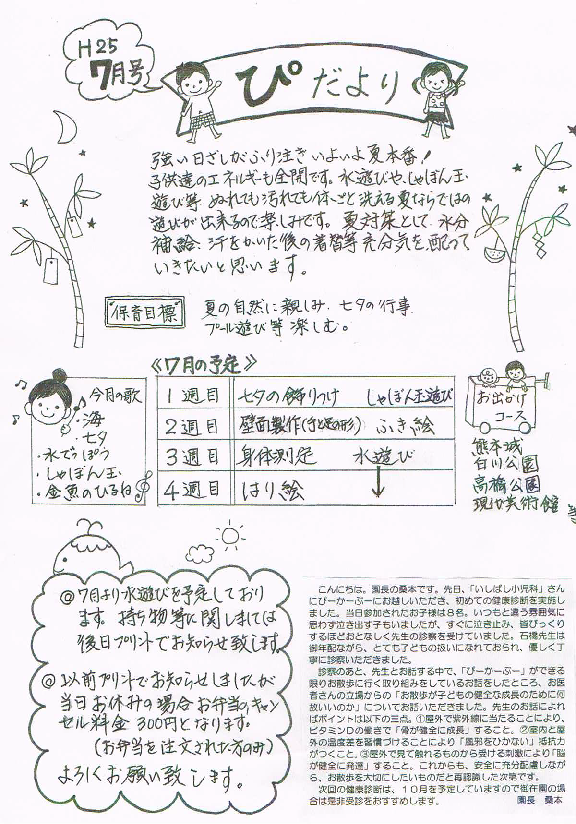 H25
7月号
ぴだより
強い日ざしがふり注ぎいよいよ夏本番!
子供達のエネルギーも全開です。水遊びや、しゃぼん玉
遊び等 ぬれても汚れても体ごと洗える夏ならではの
遊びが出来るので楽しみです。夏対策として、水分
補給、汗をかいた後の着替等充分気を配って
いきたいと思います。
保育目標
夏の自然に親しみ、七夕の行事
プール遊び等楽しむ。
《7月の予定》
今月の歌
・海
・七夕
・水でっぽう
・しゃぼん玉
・金魚のひるね
1週目 七夕の飾りつけ しゃぼん玉遊び
2週目 壁面製作 ふき絵
3週目 身体測定 水遊び
4週目 はり絵
お出かけ
コース
熊本城
白川公園
高橋公園
現代美術館
◎7月より水遊びを予定しており
ます。持ち物等に関しましては
後日プリントでお知らせ致します。
◎以前プリントでお知らせしましたが
当日お休みの場合お弁当のキャン
セル料金300円となります。
(お弁当を注文された方のみ)
よろしくお願い致します。
こんにちは。園長の桑本です。先日、「いしばし小児科」さん
にぴーかーぶーにお越しいただき、初めての健康診断を実施し
ました。当日参加されたお子様は8名。いつもと違う雰囲気に
思わず泣き出す子もいましたが、すぐに泣き止み、皆びっくり
するほどおとなしく先生の診察を受けていました。石橋先生は
御年配ながら、とても子どもの扱いになれておられ、優しく丁
寧に診察いただきました。
診察のあと、先生とお話する中で、「ぴーかーぶー」ができる
限りお散歩に行く取り組みをしているお話をしたところ、お医
者さんの立場からの「お散歩が子どもの健全な成長のために何
故いいのか」についてお話いただきました。先生のお話によれ
ばポイントは以下の三点。①屋外で紫外線に当たることにより、
ビタミンDの働きで「骨が健全に成長」すること。②室内と屋
外の温度差を習慣づけることにより「風邪をひかない」抵抗力
がつくこと。③屋外で見て触れるものから受ける刺激により「脳
が健全に発達」すること。これからも、安全に充分配慮しなが
ら、お散歩を大切にしたいものだと再認識した次第です。
次回の健康診断は、10月を予定していますので御在園の場
合は是非受診をおすすめします。 園長 桑本